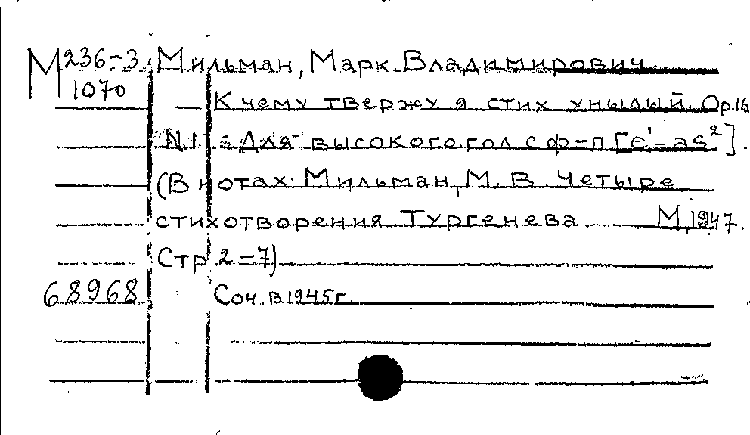 М 236-3 Мильман, Марк Владимирович
1070 К чему твержу я стих унылый. Ор.16
N1 Для высокого гол с ф-п [e¹-as²].
(В нотах: Мильман, М. В. Четыре
стихотворения Тургенева М, 1947.
Стр 2-7)
68968 Соч. в 1945г